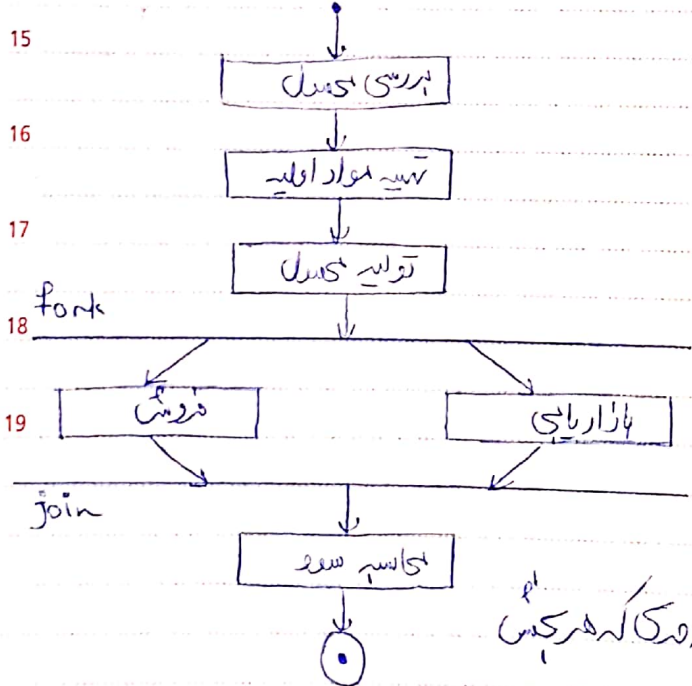 15
بررسی محصول
16
تهیه مواد اولیه
17
تولید محصول
fork
18
فروش
بازاریابی
19
join
محاسبه سود
که هر بخش